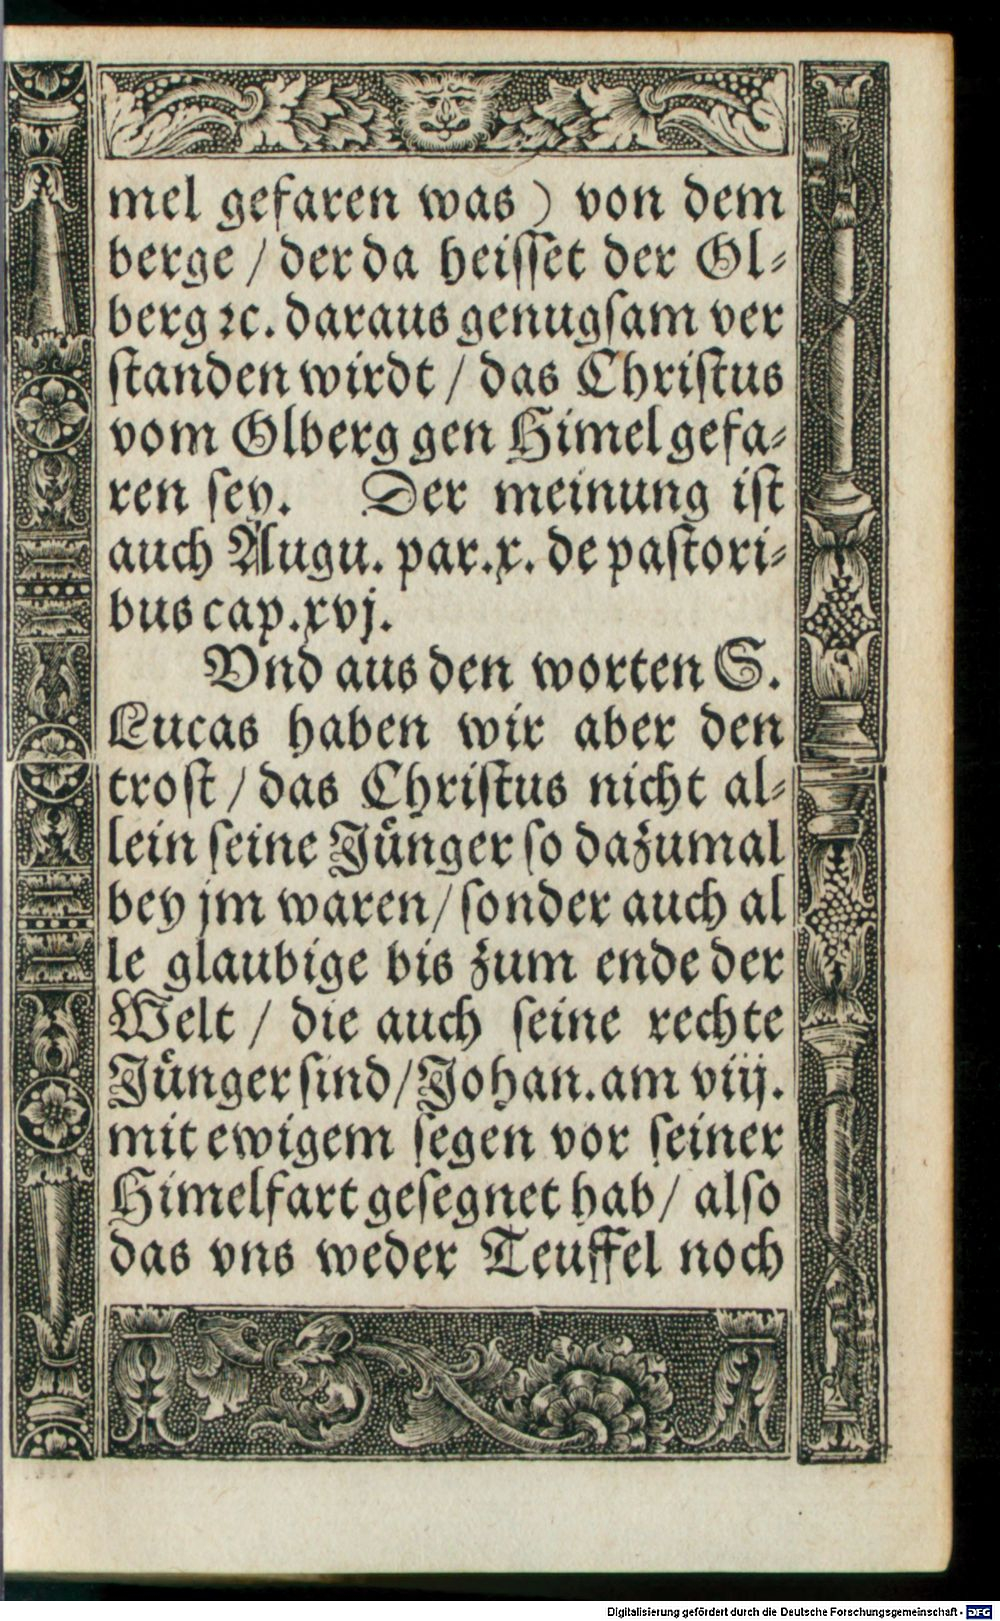 mel gefaren was) von dem
berge / der da heiſſet der Ol⸗
berg ꝛc. daraus genugſam ver
ſtanden wirdt / das Chriſtus
vom Olberg gen Himel gefa⸗
ren ſey. Der meinung iſt
auch Augu. par.x. de paſtori⸗
bus cap.xvj.
Vnd aus den worten S.
Lucas haben wir aber den
troſt / das Chriſtus nicht al⸗
lein ſeine Jünger ſo dazumal
bey jm waren/ ſonder auch al
le glaubige bis zum ende der
Welt / die auch ſeine rechte
Jünger ſind/ Johan. am viij.
mit ewigem ſegen vor ſeiner
Himelfart geſegnet hab/ alſo
das vns weder Teuffel noch
Digitalisierung gefördert durch die Deutsche Forschungsgemeinschaft - DFG